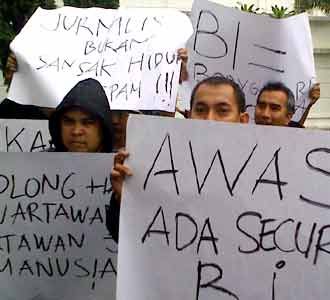 JURNALIS
BUKAN
SANSAK HIDUP
SATPAM !!!
BI =
KA
OLONG HA
WARTAWAN
RTAWAN J
MANUSIA
AWAS
ADA SECUR
BI